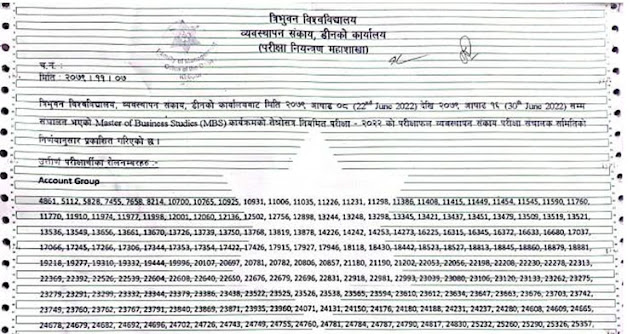 त्रिभुवन विश्वविद्यालय
व्यवस्थापन संकाय, डीनको कार्यालय
(परीक्षा नियन्त्रण महाशाखा)
Faculty of Management
च.न.:
मिति : २०७९ । ११ । ०७
त्रिभुवन विश्वविद्यालय, व्यवस्थापन संकाय, डीनको कार्यालयबाट मिति २०७९ आषाढ ०८ (22nd June 2022) देखि २०७९ आषाढ १६ (30th June 2022) सम्म
संचालन भएको Master of Business Studies (MBS) कार्यक्रमको तेस्रोसत्र नियमित परीक्षा - २०२२ को परीक्षाफल व्यवस्थापन संकाय परीक्षा संचालक समितिको
निर्णयानुसार प्रकाशित गरिएको छ ।
उत्तीर्ण परीक्षार्थीका रोलनम्बरहरु:-
Account Group
4861, 5112, 5828, 7455, 7658, 8214, 10700, 10765, 10925, 10931, 11006, 11035, 11226, 11231, 11298, 11386, 11408, 11415, 11449, 11454, 11545, 11590, 11760,
11770, 11910, 11974, 11977, 11998, 12001, 12060, 12136, 12502, 12756, 12898, 13244, 13248, 13298, 13345, 13421, 13437, 13451, 13479, 13509, 13519, 13521,
13536, 13549, 13656, 13661, 13670, 13726, 13739, 13750, 13768, 13819, 13878, 14226, 14242, 14253, 14273, 16225, 16315, 16345, 16372, 16633, 16680, 17037,
17066, 17245, 17266, 17306, 17344, 17353, 17354, 17422, 17426, 17915, 17927, 17946, 18118, 18430, 18442, 18523, 18527, 18813, 18845, 18860, 18879, 18881,
19218, 19277, 19310, 19332, 19444, 19996, 20107, 20697, 20781, 20782, 20806, 20857, 21180, 21190, 21202, 22053, 22056, 22198, 22208, 22230, 22278, 22313,
22369, 22392, 22526, 22539, 22604, 22608, 22640, 22650, 22676, 22676, 22692, 22831, 22918, 22981, 22993, 23039, 23080, 23106, 23120, 23133, 23262, 23275,
23279, 23291, 23299, 23332, 23344, 23379, 23386, 23438, 23522, 23525, 23526, 23538, 23565, 23594, 23610, 23612, 23634, 23647, 23663, 23676, 23703, 23742,
23749, 23760, 23762, 23767, 23791, 23840, 23869, 23871, 23935, 23960, 24071, 24131, 24150, 24176, 24180, 24188, 24231, 24237, 24280, 24608, 24609, 24665,
24678, 24679, 24682, 24692, 24696, 24702, 24704, 24743, 24749, 24755, 24760, 24781, 24784, 24787, 24790, 24817, 24830, 25232, 25260, 25290, 25336, 25357,